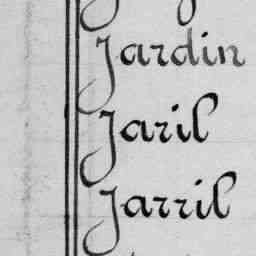 Jardin
Jaril
Jarril